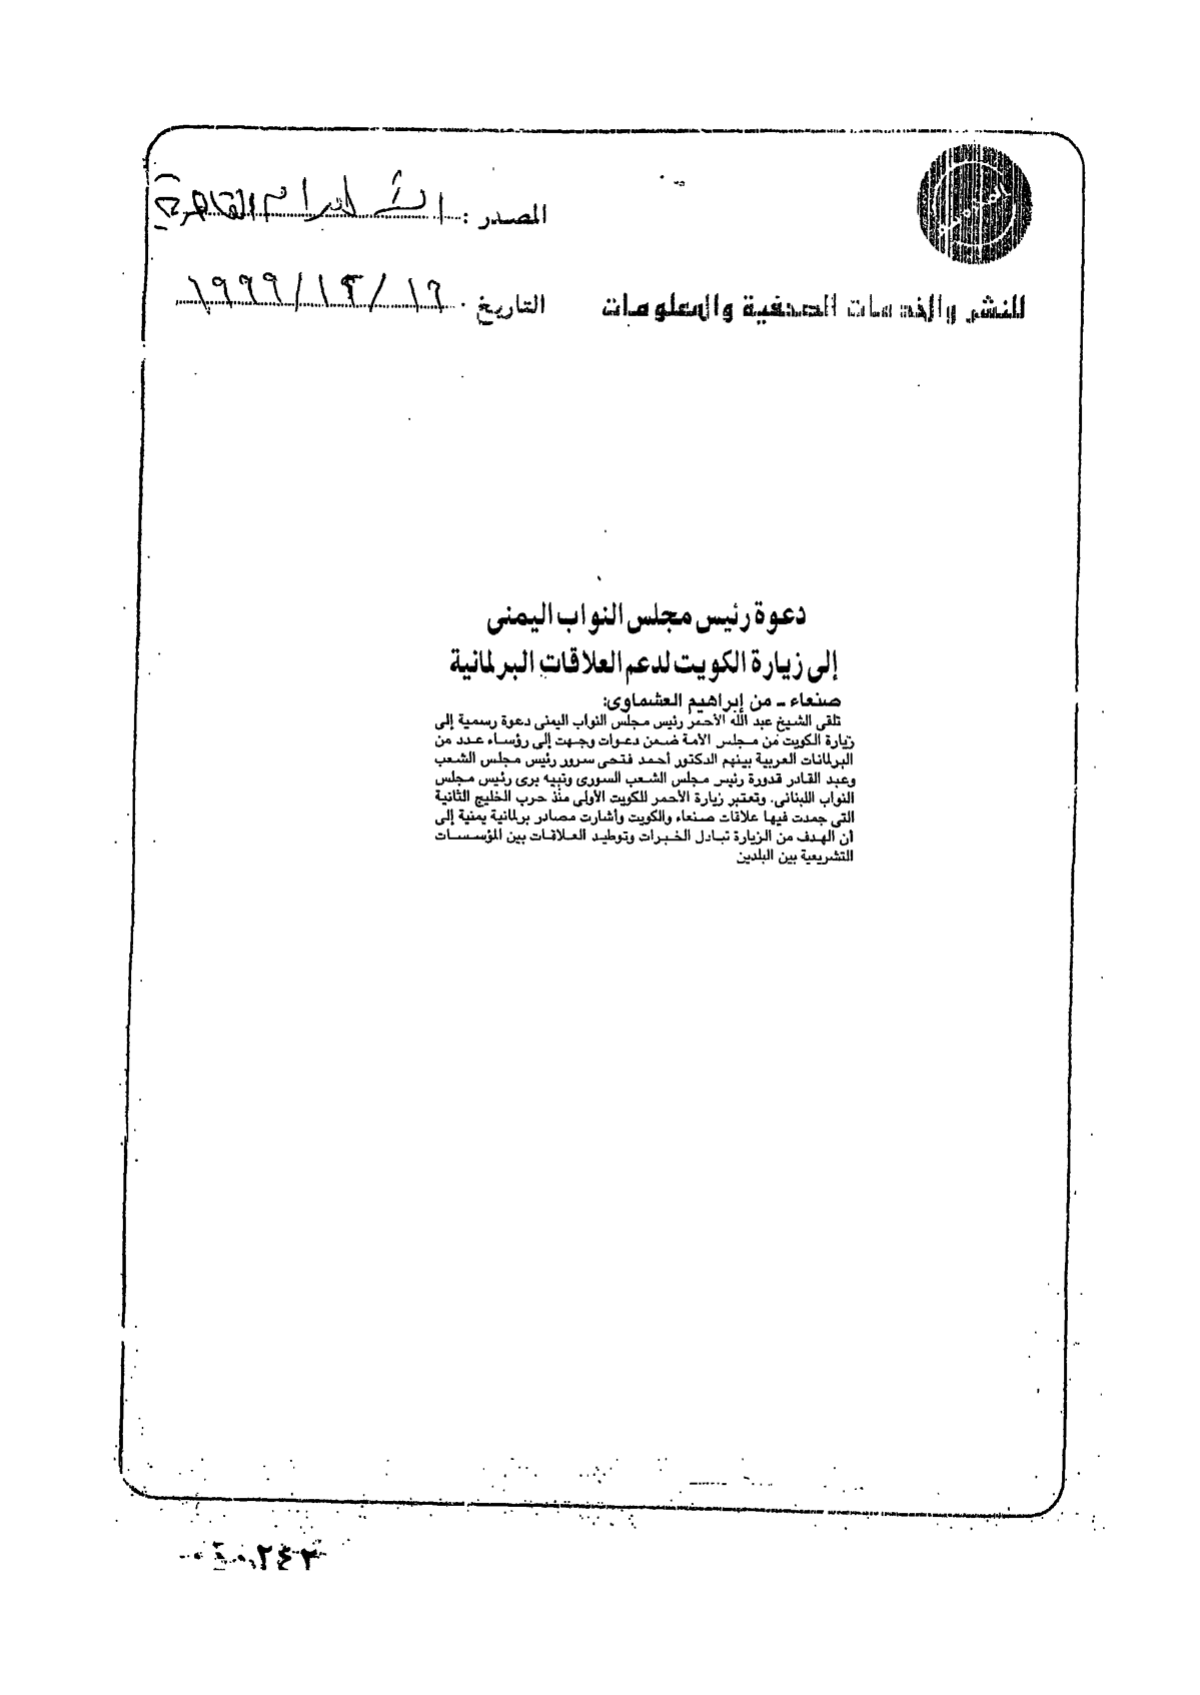 المصدر :
التاريخ . ١٦/١٢/١٩٩٩
للنشر والخدمات الصحفية والمعلومات
دعوة رئيس مجلس النواب اليمنى
إلى زيارة الكويت لدعم العلاقات البرلمانية
صنعاء ـ من إبراهيم العشماوى:
تلقى الشيخ عبد الله الأحمر رئيس مجلس النواب اليمنى دعوة رسمية إلى
زيارة الكويت من مجلس الأمة ضمن دعوات وجهت إلى رؤساء عدد من
البرلمانات العربية بينهم الدكتور أحمد فتحى سرور رئيس مجلس الشعب
وعبد القادر قدورة رئيس مجلس الشعب السورى ونبيه برى رئيس مجلس
النواب اللبنانى. وتعتبر زيارة الأحمر للكويت الأولى منذ حرب الخليج الثانية
التى جمدت فيها علاقات صنعاء والكويت وأشارت مصادر برلمانية يمنية إلى
أن الهدف من الزيارة تبادل الخبرات وتوطيد العلاقات بين المؤسسات
التشريعية بين البلدين